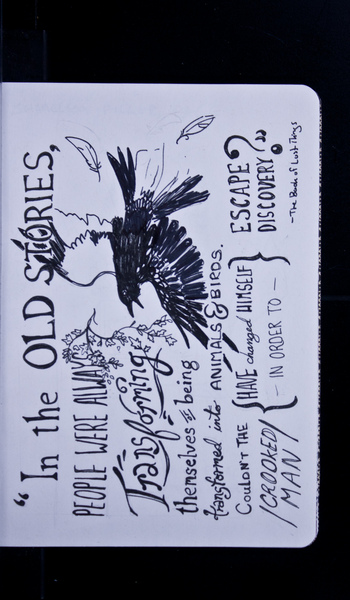 "In the OLD STORIES,
PEOPLE WERE ALWAYS
Transforming
themselves or being
transformed into ANIMALS & BIRDS.
COULDN'T THE {HAVE changed HIMSELF}
/CROOKED/
MAN/
{— IN ORDER TO —}
ESCAPE?
DISCOVERY?"
—The Book of Lost Things